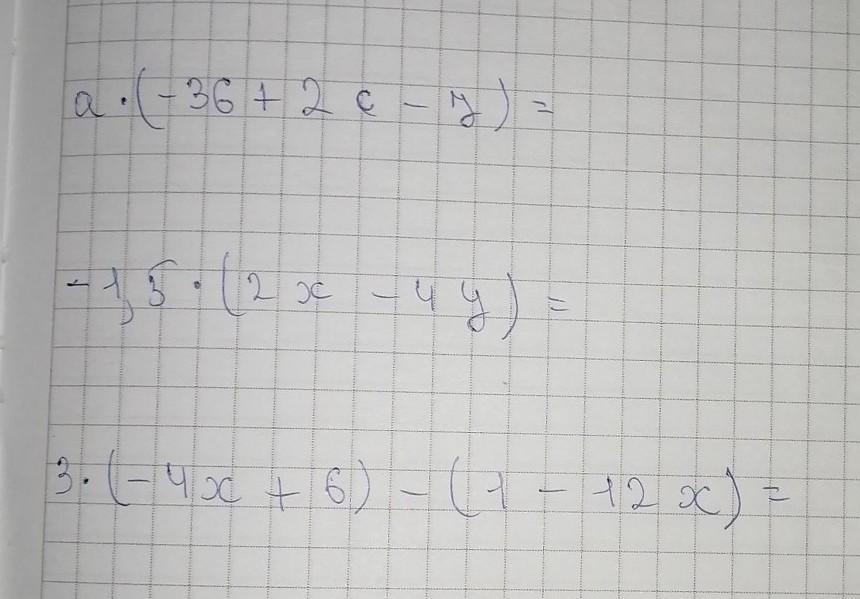 a·(-3б+2c-y)=
-1,5·(2x-4y)=
3·(-4x+6)-(1-12x)=